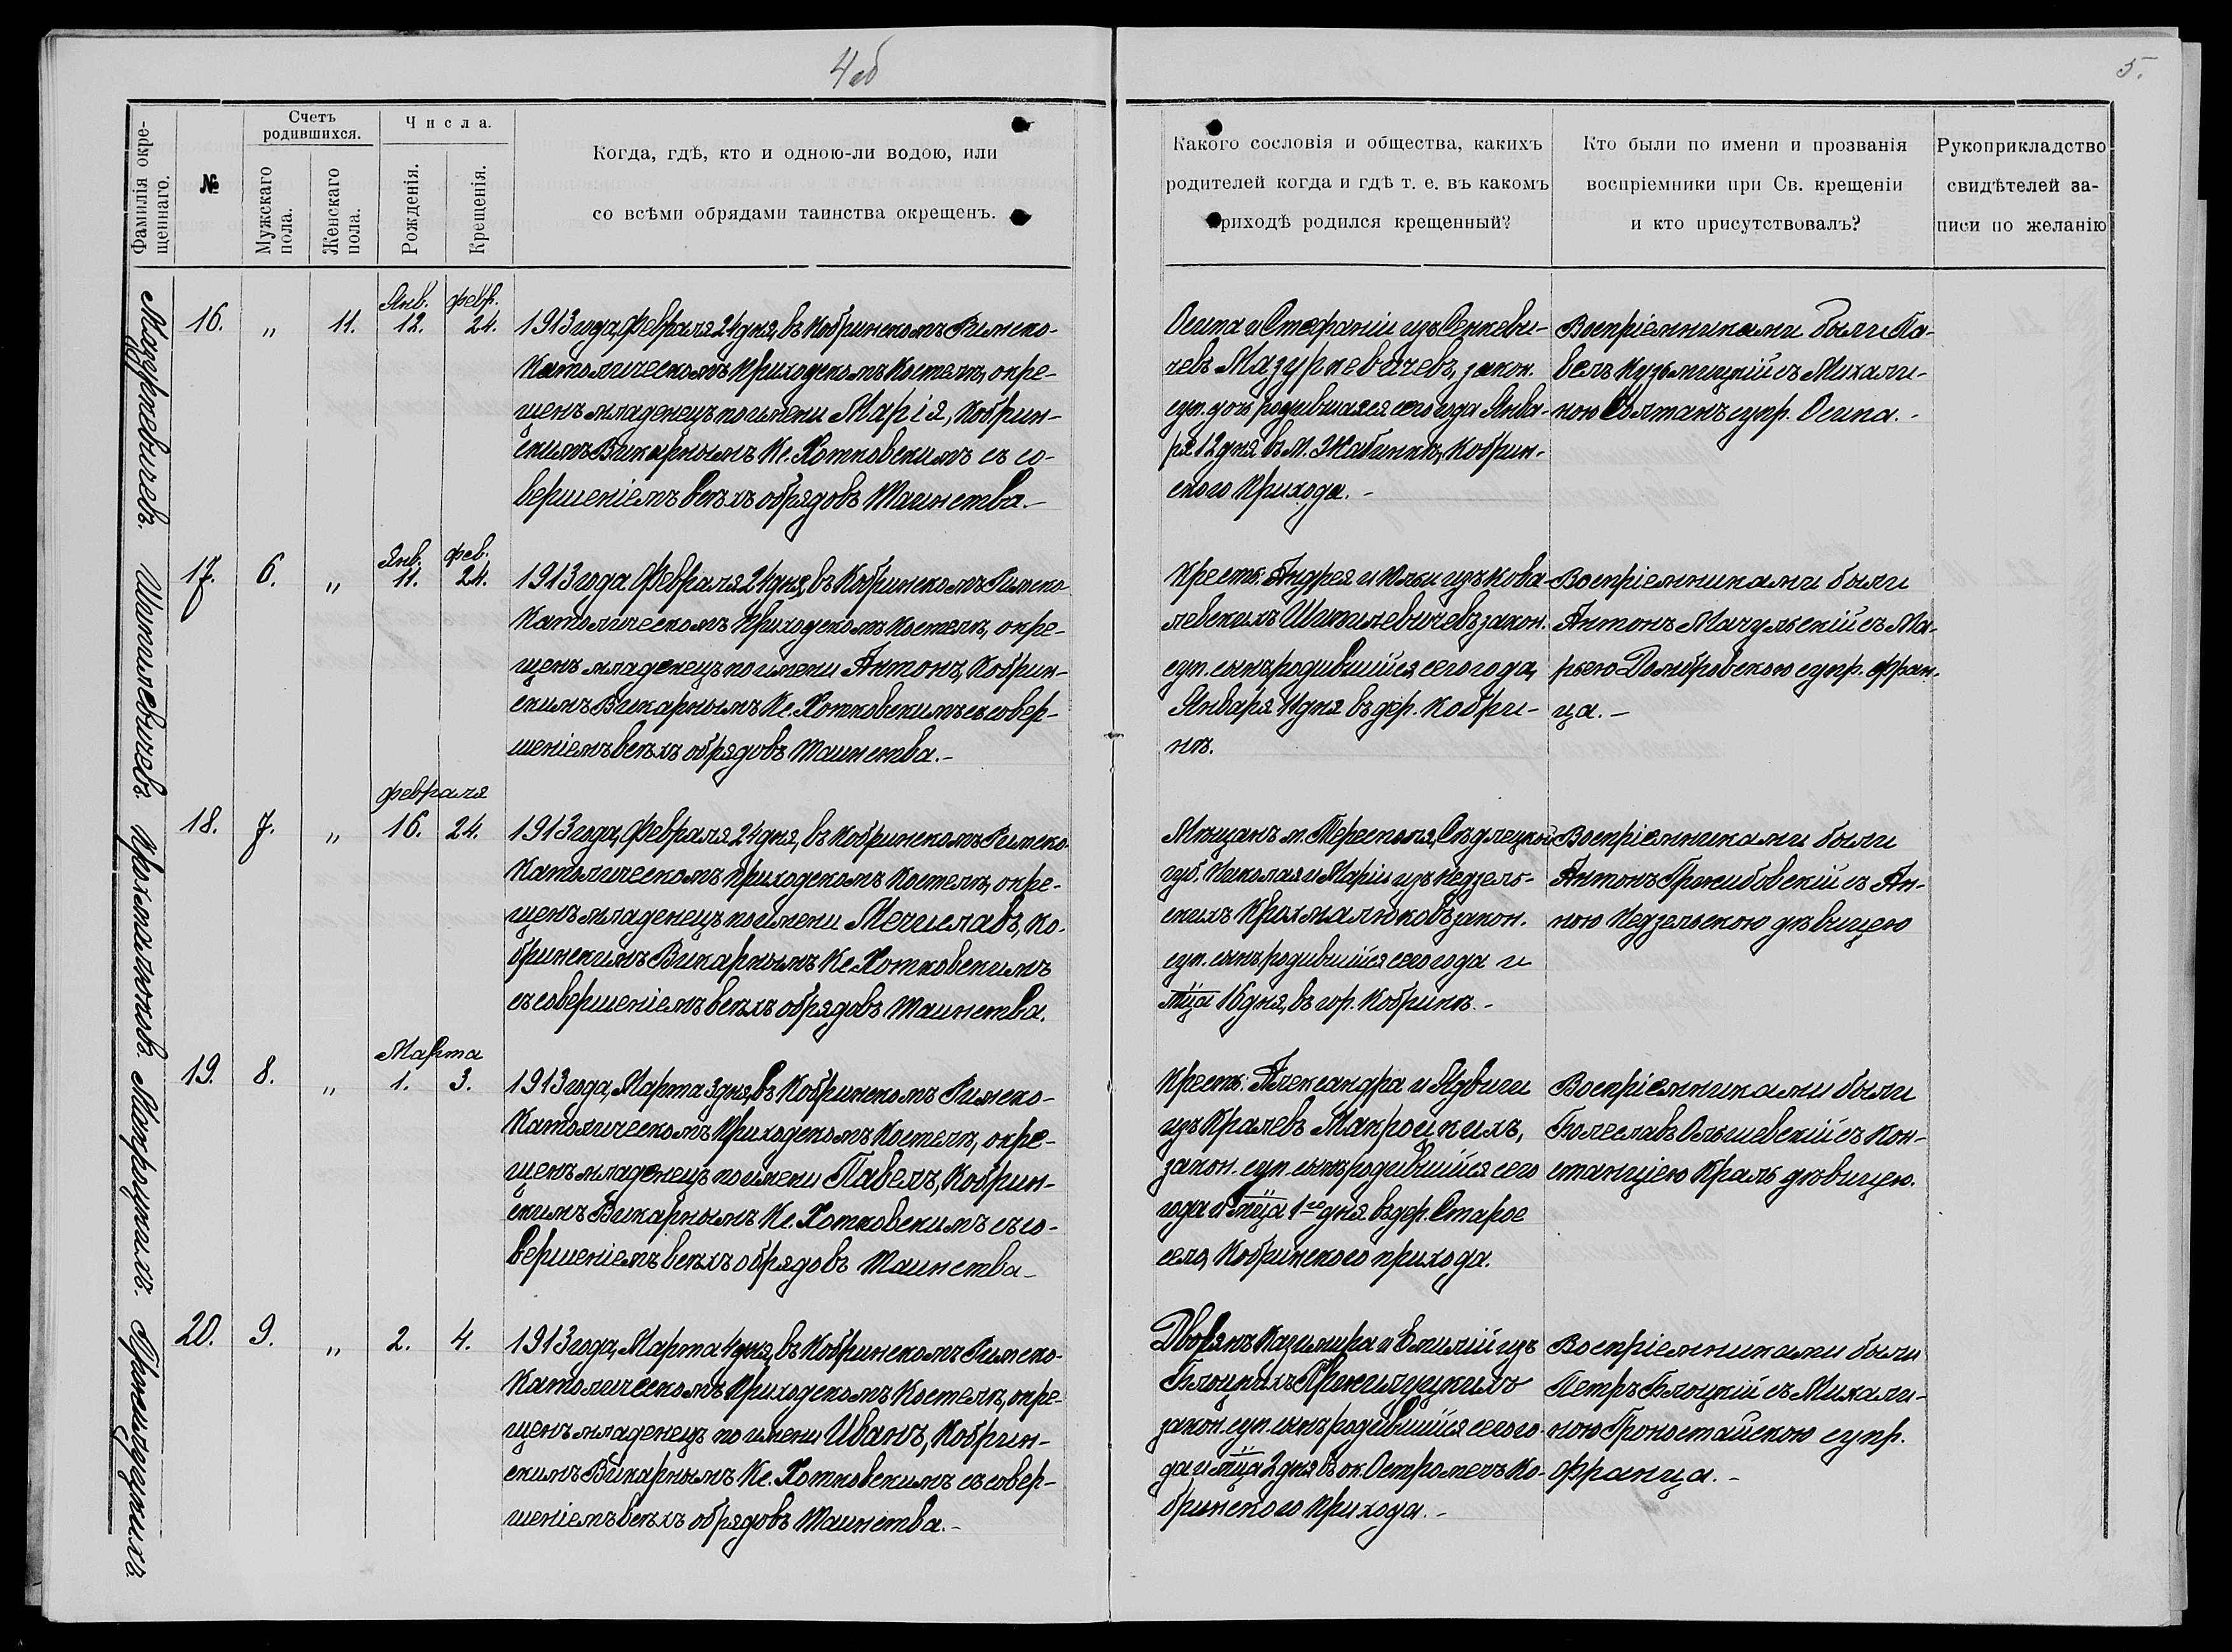 4об
5.
Фамилія окре-
щеннаго.
№
Счетъ
родившихся.
Мужскаго
пола.
Женскаго
пола.
Числа.
Рожденія.
Крещенія.
Когда, гдѣ, кто и одною-ли водою, или
со всѣми обрядами таинства окрещенъ.
Какого сословія и общества, какихъ
родителей когда и гдѣ т. е. въ какомъ
приходѣ родился крещенный?
Кто были по имени и прозванія
воспріемники при Св. крещеніи
и кто присутствовалъ?
Рукоприкладство
свидѣтелей за-
писи по желанію
Мазуркевичевъ.
16. " 11. Янв. 12. февр. 24.
1913 года, Февраля 24 дня, въ Кобринскомъ Римско-
Католическомъ Приходскомъ Костелѣ, окре-
щенъ младенецъ по имени Марія, Кобрин-
скимъ Викарнымъ Кс. Хотковскимъ съ со-
вершеніемъ всѣхъ обрядовъ Таинства.-
Осипа и Стефаніи изъ Сенкеви-
чевъ Мазуркевичевъ, закон.
суп. дочь родившаяся сего года Янва-
ря 12 дня въ м. Жабинкѣ, Кобрин-
ского Прихода.-
Воспріемниками были Па-
велъ Кузьмицкій съ Михали-
ною Солтанъ супр. Осипа.-
Шитилевичевъ.
17. 6. " Янв. 11. фев. 24.
1913 года Февраля 24 дня, въ Кобринскомъ Римско
Католическомъ Приходскомъ Костелѣ, окре-
щенъ младенецъ по имени Антонъ, Кобрин-
скимъ Викарнымъ Кс. Хотковскимъ съ совер-
шеніемъ всѣхъ обрядовъ Таинства.-
Крест. Андрея и Юліи изъ Кова-
левскихъ Шитилевичевъ закон.
суп. сынъ родившійся сего года,
Января 11 дня въ гор. Кобри-
нѣ.
Воспріемниками были
Антонъ Мачульскій съ Ма-
рьею Домбровскою супр. Фран-
ца.-
Крохмалюковъ.
18. 7. " февраля 16. 24.
1913 года, Февраля 24 дня, въ Кобринскомъ Римско-
Католическомъ Приходскомъ Костелѣ, окре-
щенъ младенецъ по имени Мечиславъ, Ко-
бринскимъ Викарнымъ Кс. Хотковскимъ
съ совершеніемъ всѣхъ обрядовъ Таинства.
Мѣщанъ м. Тересполя, Сѣдлецкой
губ. Николая и Маріи изъ Недзель-
скихъ Крохмалюковъ закон.
суп. сынъ родившійся сего года и
мца 16 дня, въ гор. Кобринѣ.-
Воспріемниками были
Антонъ Гржибовскій съ Ан-
ною Недзельскою дѣвицею
Макроцкихъ.
19. 8. " Марта 1. 3.
1913 года, Марта 3 дня, въ Кобринскомъ Римско-
Католическомъ Приходскомъ Костелѣ, окре-
щенъ младенецъ по имени Павелъ, Кобрин-
скимъ Викарнымъ Кс. Хотковскимъ съ со-
вершеніемъ всѣхъ обрядовъ Таинства-
Крест. Александра и Ядвиги
изъ Кралевъ Макроцкихъ,
закон. суп. сынъ родившійся сего
года и мца 1го дня въ дер. Старое
село, Кобринского прихода.
Воспріемниками были
Болеславъ Ольшевскій съ Кон-
станціею Краль дѣвицею.
20. 9. " 2. 4.
1913 года, Марта 4 дня, въ Кобринскомъ Римско-
Католическомъ Приходскомъ Костелѣ, окре-
щенъ младенецъ по имени Иванъ, Кобрин-
скимъ Викарнымъ Кс. Хотковскимъ съ совер-
шеніемъ всѣхъ обрядовъ Таинства.-
Дворянъ Казимира и Емиліи изъ
Блоцкихъ
закон. суп. сынъ родившійся сего го-
да и мца 2 дня въ ок. Остромечъ Ко-
бринского Прихода.-
Воспріемниками были
Петръ Блоцкій съ Михали-
ною Гроностайскою супр.
Франца.-